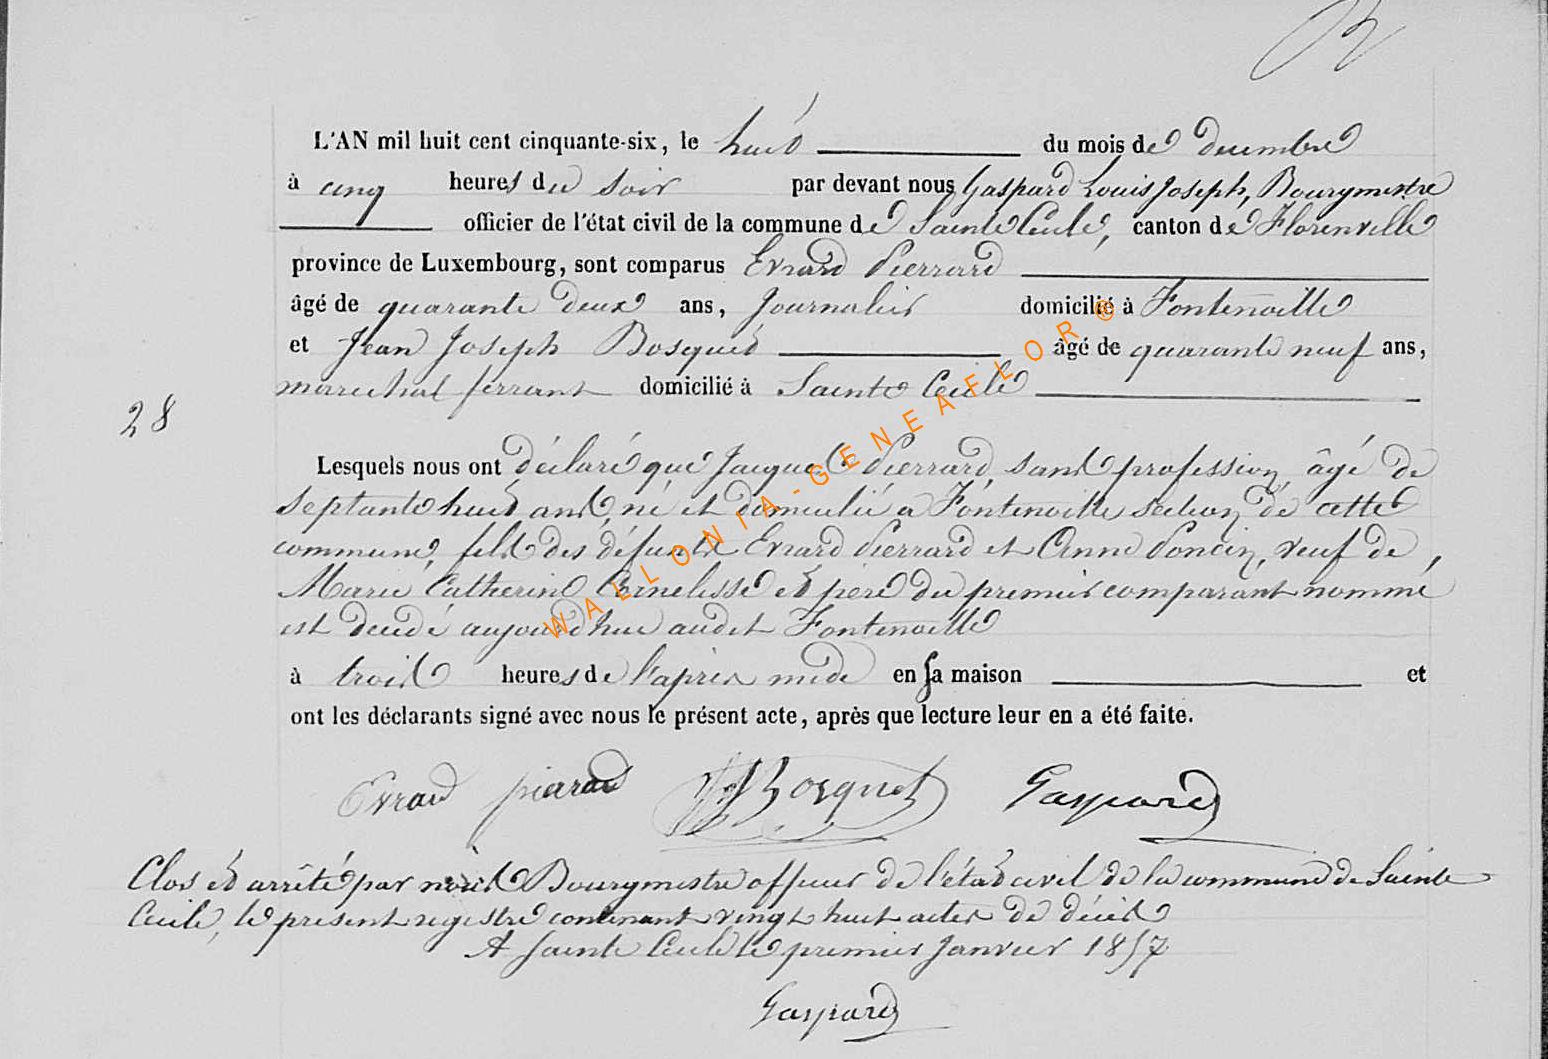 L'AN mil huit cent cinquante-six, le huit du mois de decembre
à cinq heures du soir par devant nous Gaspard Louis Joseph, Bourgmestre
officier de l'état civil de la commune de Sainte Cecile, canton de Florenville
province de Luxembourg, sont comparus Evrard Pierrard
âgé de quarante deux ans, Journalier domicilié à Fontenoille
et Jean Joseph Bosquet âgé de quarante neuf ans,
marechal ferrant domicilié à Sainte Cecile
28
Lesquels nous ont déclaré que Jacques Pierrard, sans profession, âgé de
septante huit ans, né et domicilié a Fontenoille section de cette
commune, fils des défunts Evrard Pierrard et Anne Poncin, veuf de
Marie Catherine Cornelisse et père du premier comparant nommé,
est decedé aujourd'hui audit Fontenoille
à trois heures de l'après midi en sa maison et
ont les déclarants signé avec nous le présent acte, après que lecture leur en a été faite.
Evrard pierard JJBosquet Gaspard
Clos et arrêté par nous Bourgmestre officier de l'état civil de la commune de Sainte
Cecile, le présent registre contenant vingt huit actes de décès
A Sainte Cecile le premier Janvier 1857
Gaspard
WALLONIA-GENEAFLOR®